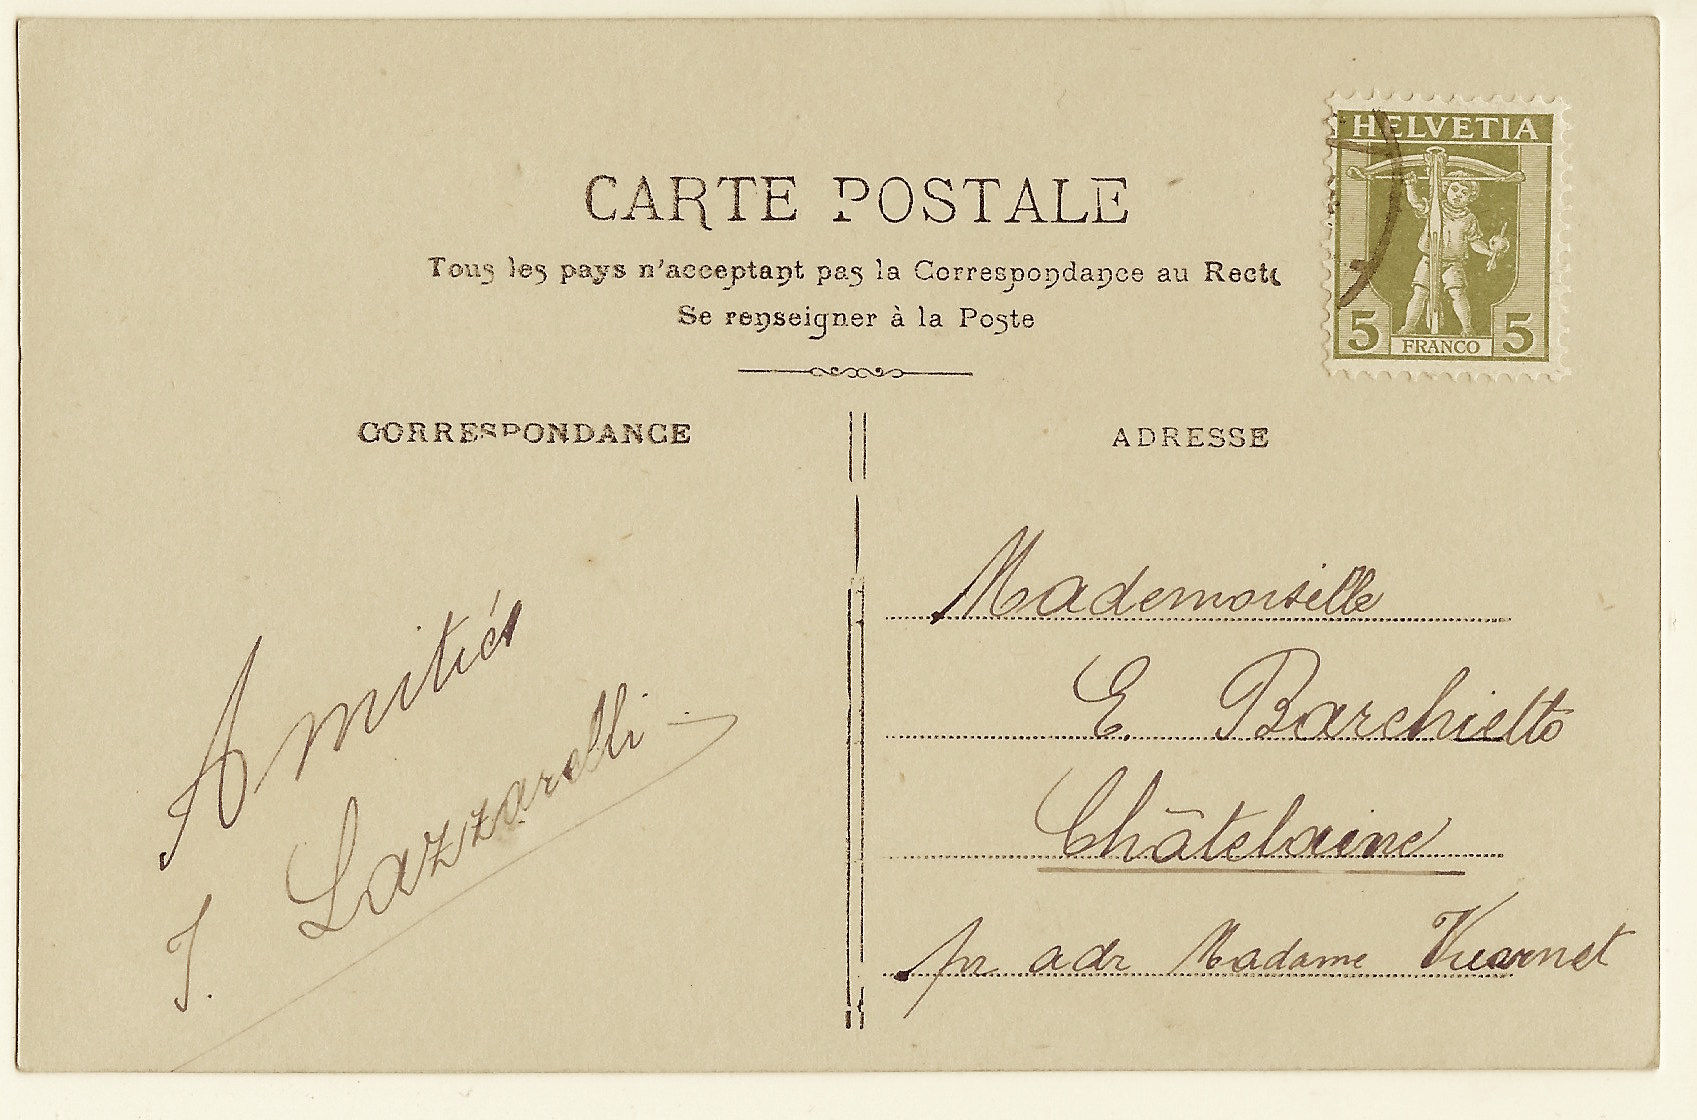 CARTE POSTALE
Tous les pays n'acceptant pas la Correspondance au Recto
Se renseigner à la Poste
HELVETIA
5 FRANCO 5
CORRESPONDANCE
Amitiés
J. Lazzarelli
ADRESSE
Mademoiselle
E. Barchietto
Châtelaine
pr adr Madame Vuarnet